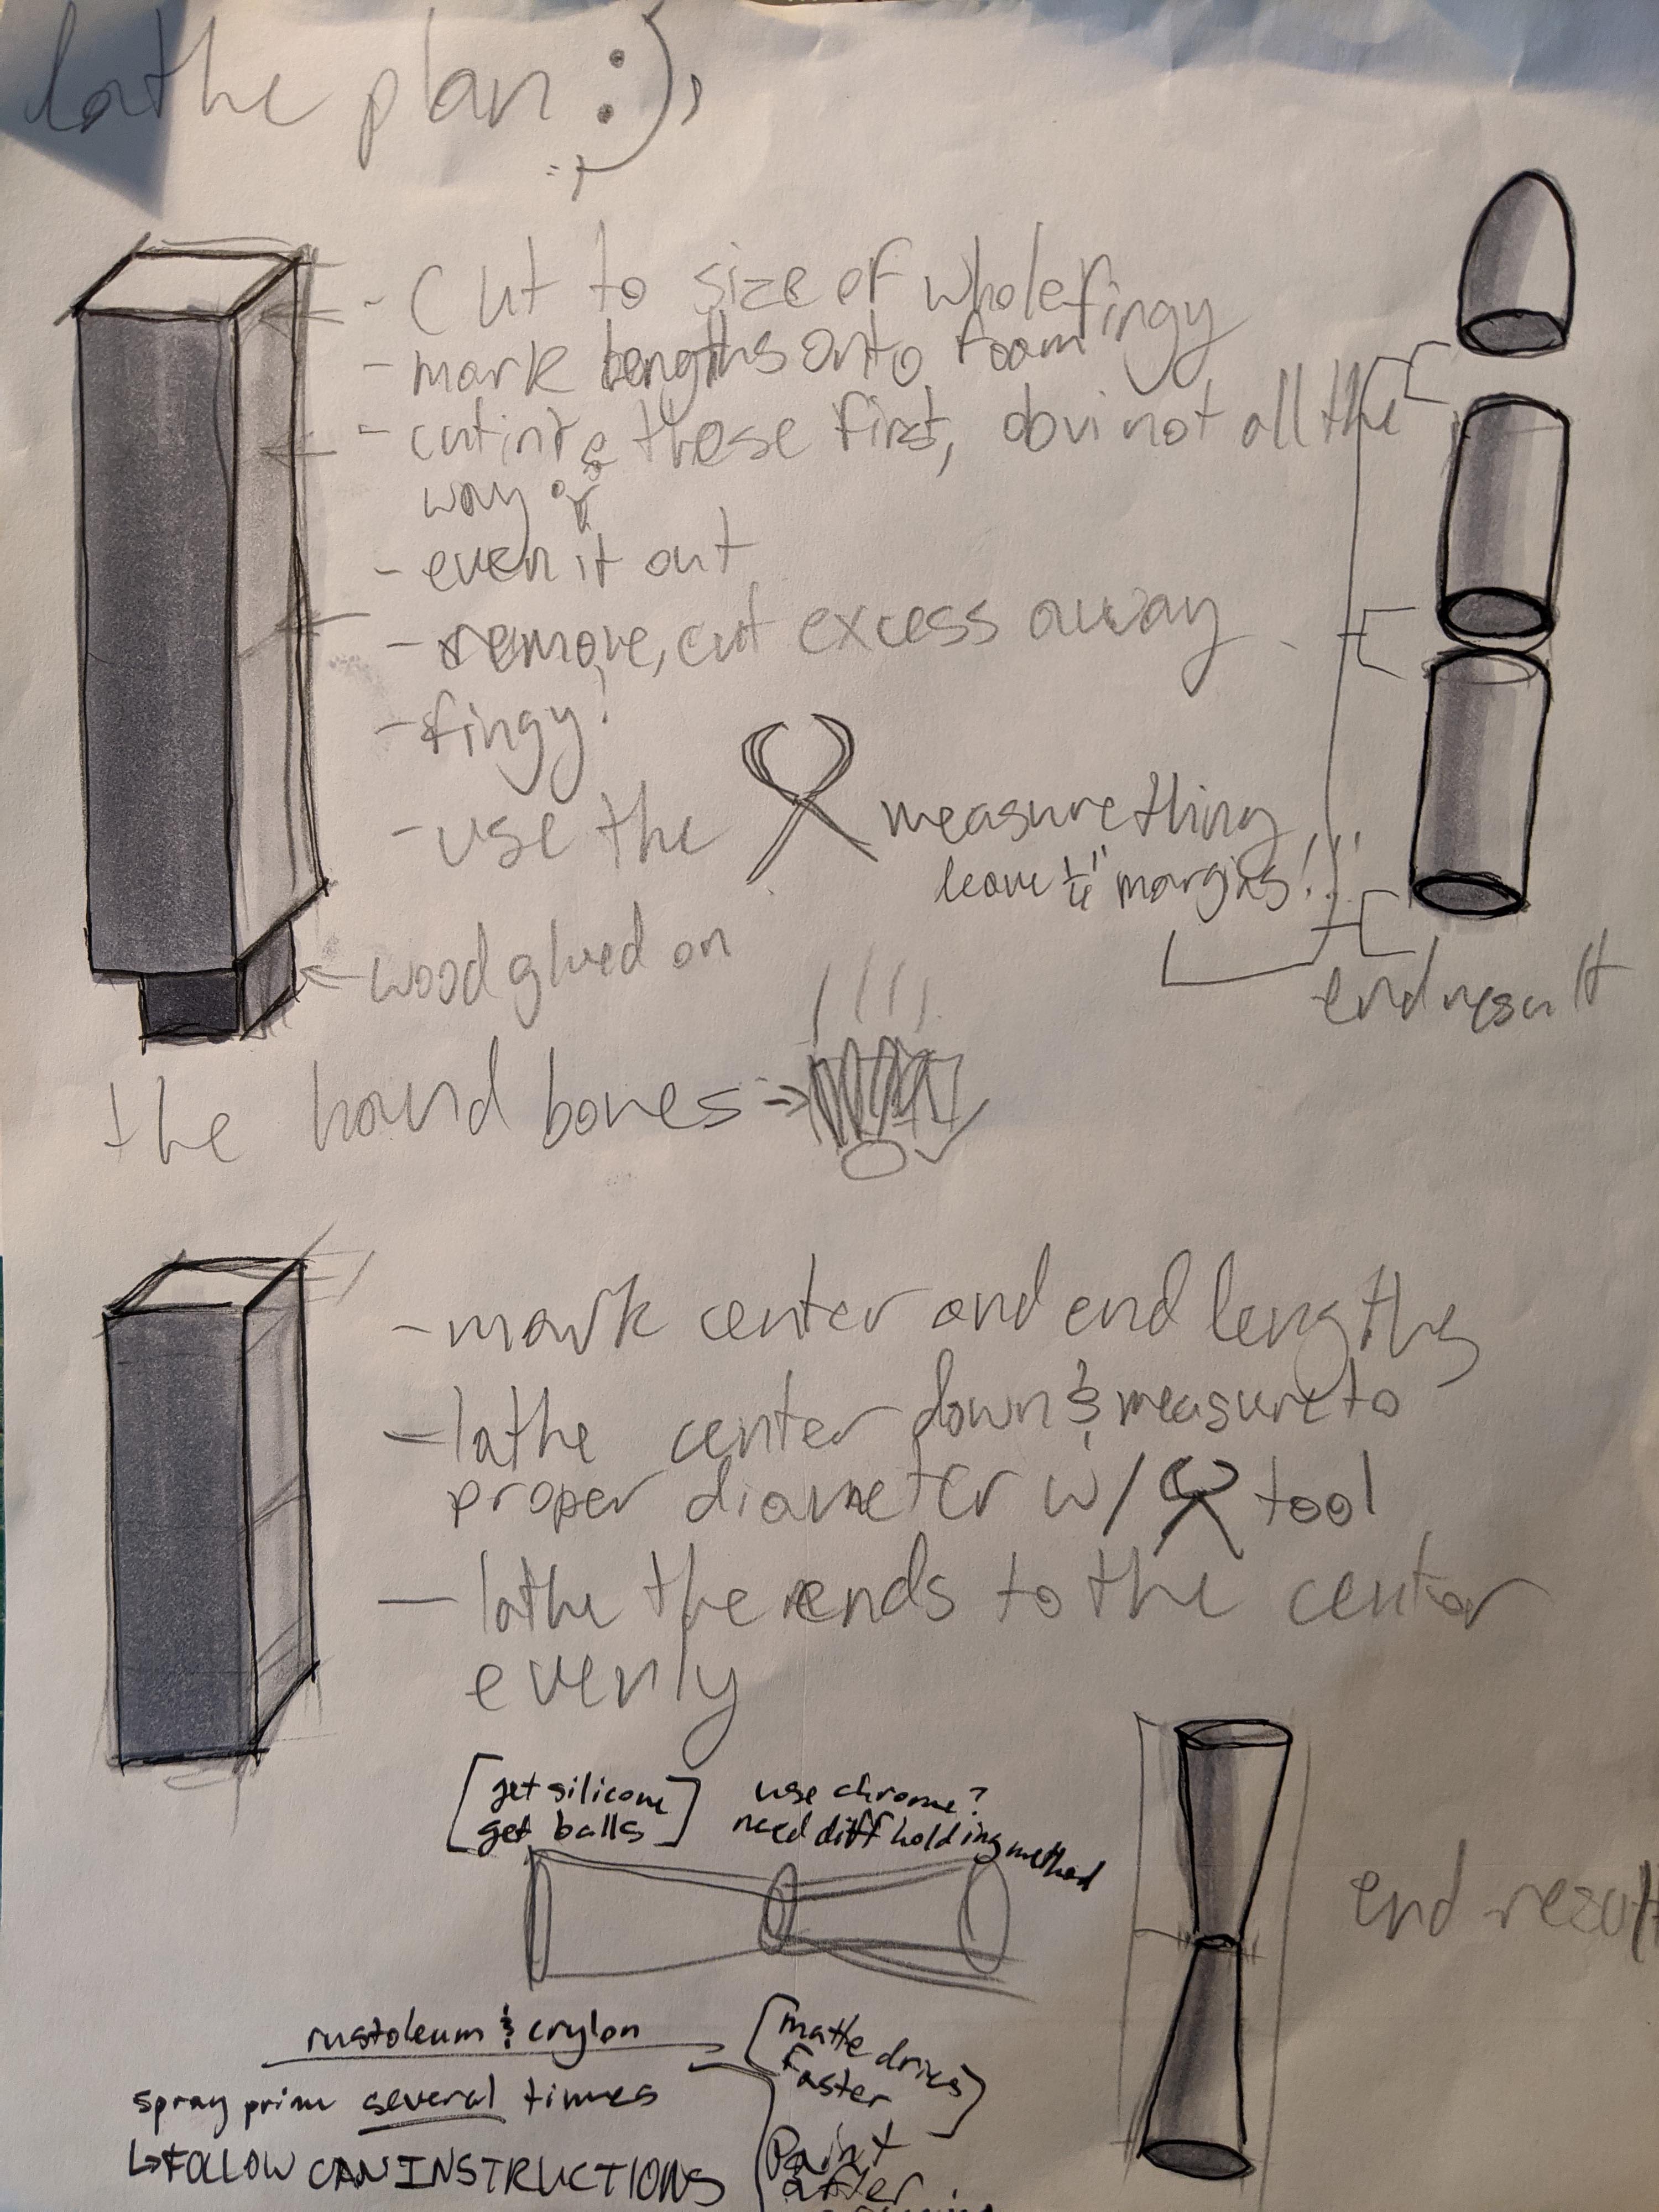 lathe plan :),
- cut to size of whole fingy
- mark lengths onto foam
- cut into these first, obvi not all the
way
- even it out
- remove, cut excess away
- fingy!
- use the measure thing
leave 1/4" margins!!
wood glued on
end result
the hand bones
- mark center and end lengths
- lathe center down & measure to
proper diameter w/ tool
- lathe the ends to the center
evenly
[get silicone
get balls]
use chrome?
need diff holding method
end result
rustoleum & crylon
[matte dries
faster]
spray prim several times
↳ FOLLOW CAN INSTRUCTIONS
Paint
after